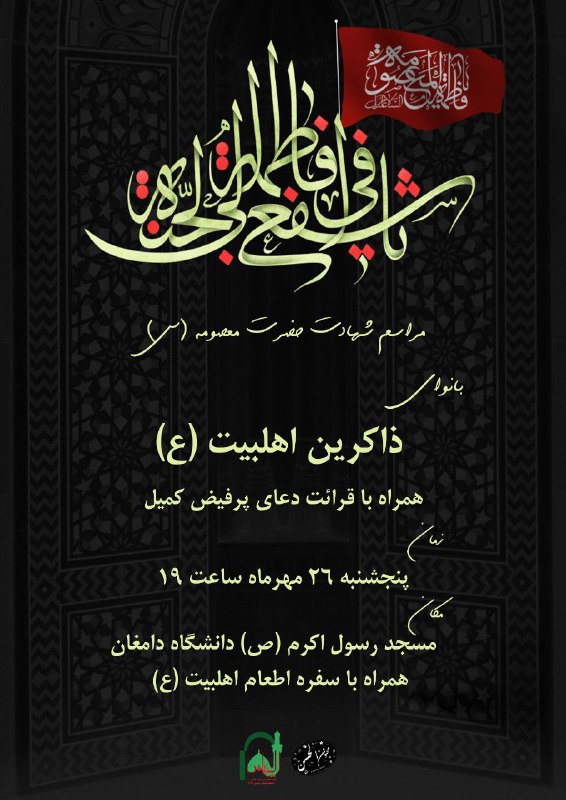 یا فاطمة المعصومة
السلام علیک
یا فاطمة اشفعی لی فی الجنة
مراسم شهادت حضرت معصومه (س)
بانوای
ذاکرین اهلبیت (ع)
همراه با قرائت دعای پرفیض کمیل
زمان
پنجشنبه ۲۶ مهرماه ساعت ۱۹
مکان
مسجد رسول اکرم (ص) دانشگاه دامغان
همراه با سفره اطعام اهلبیت (ع)